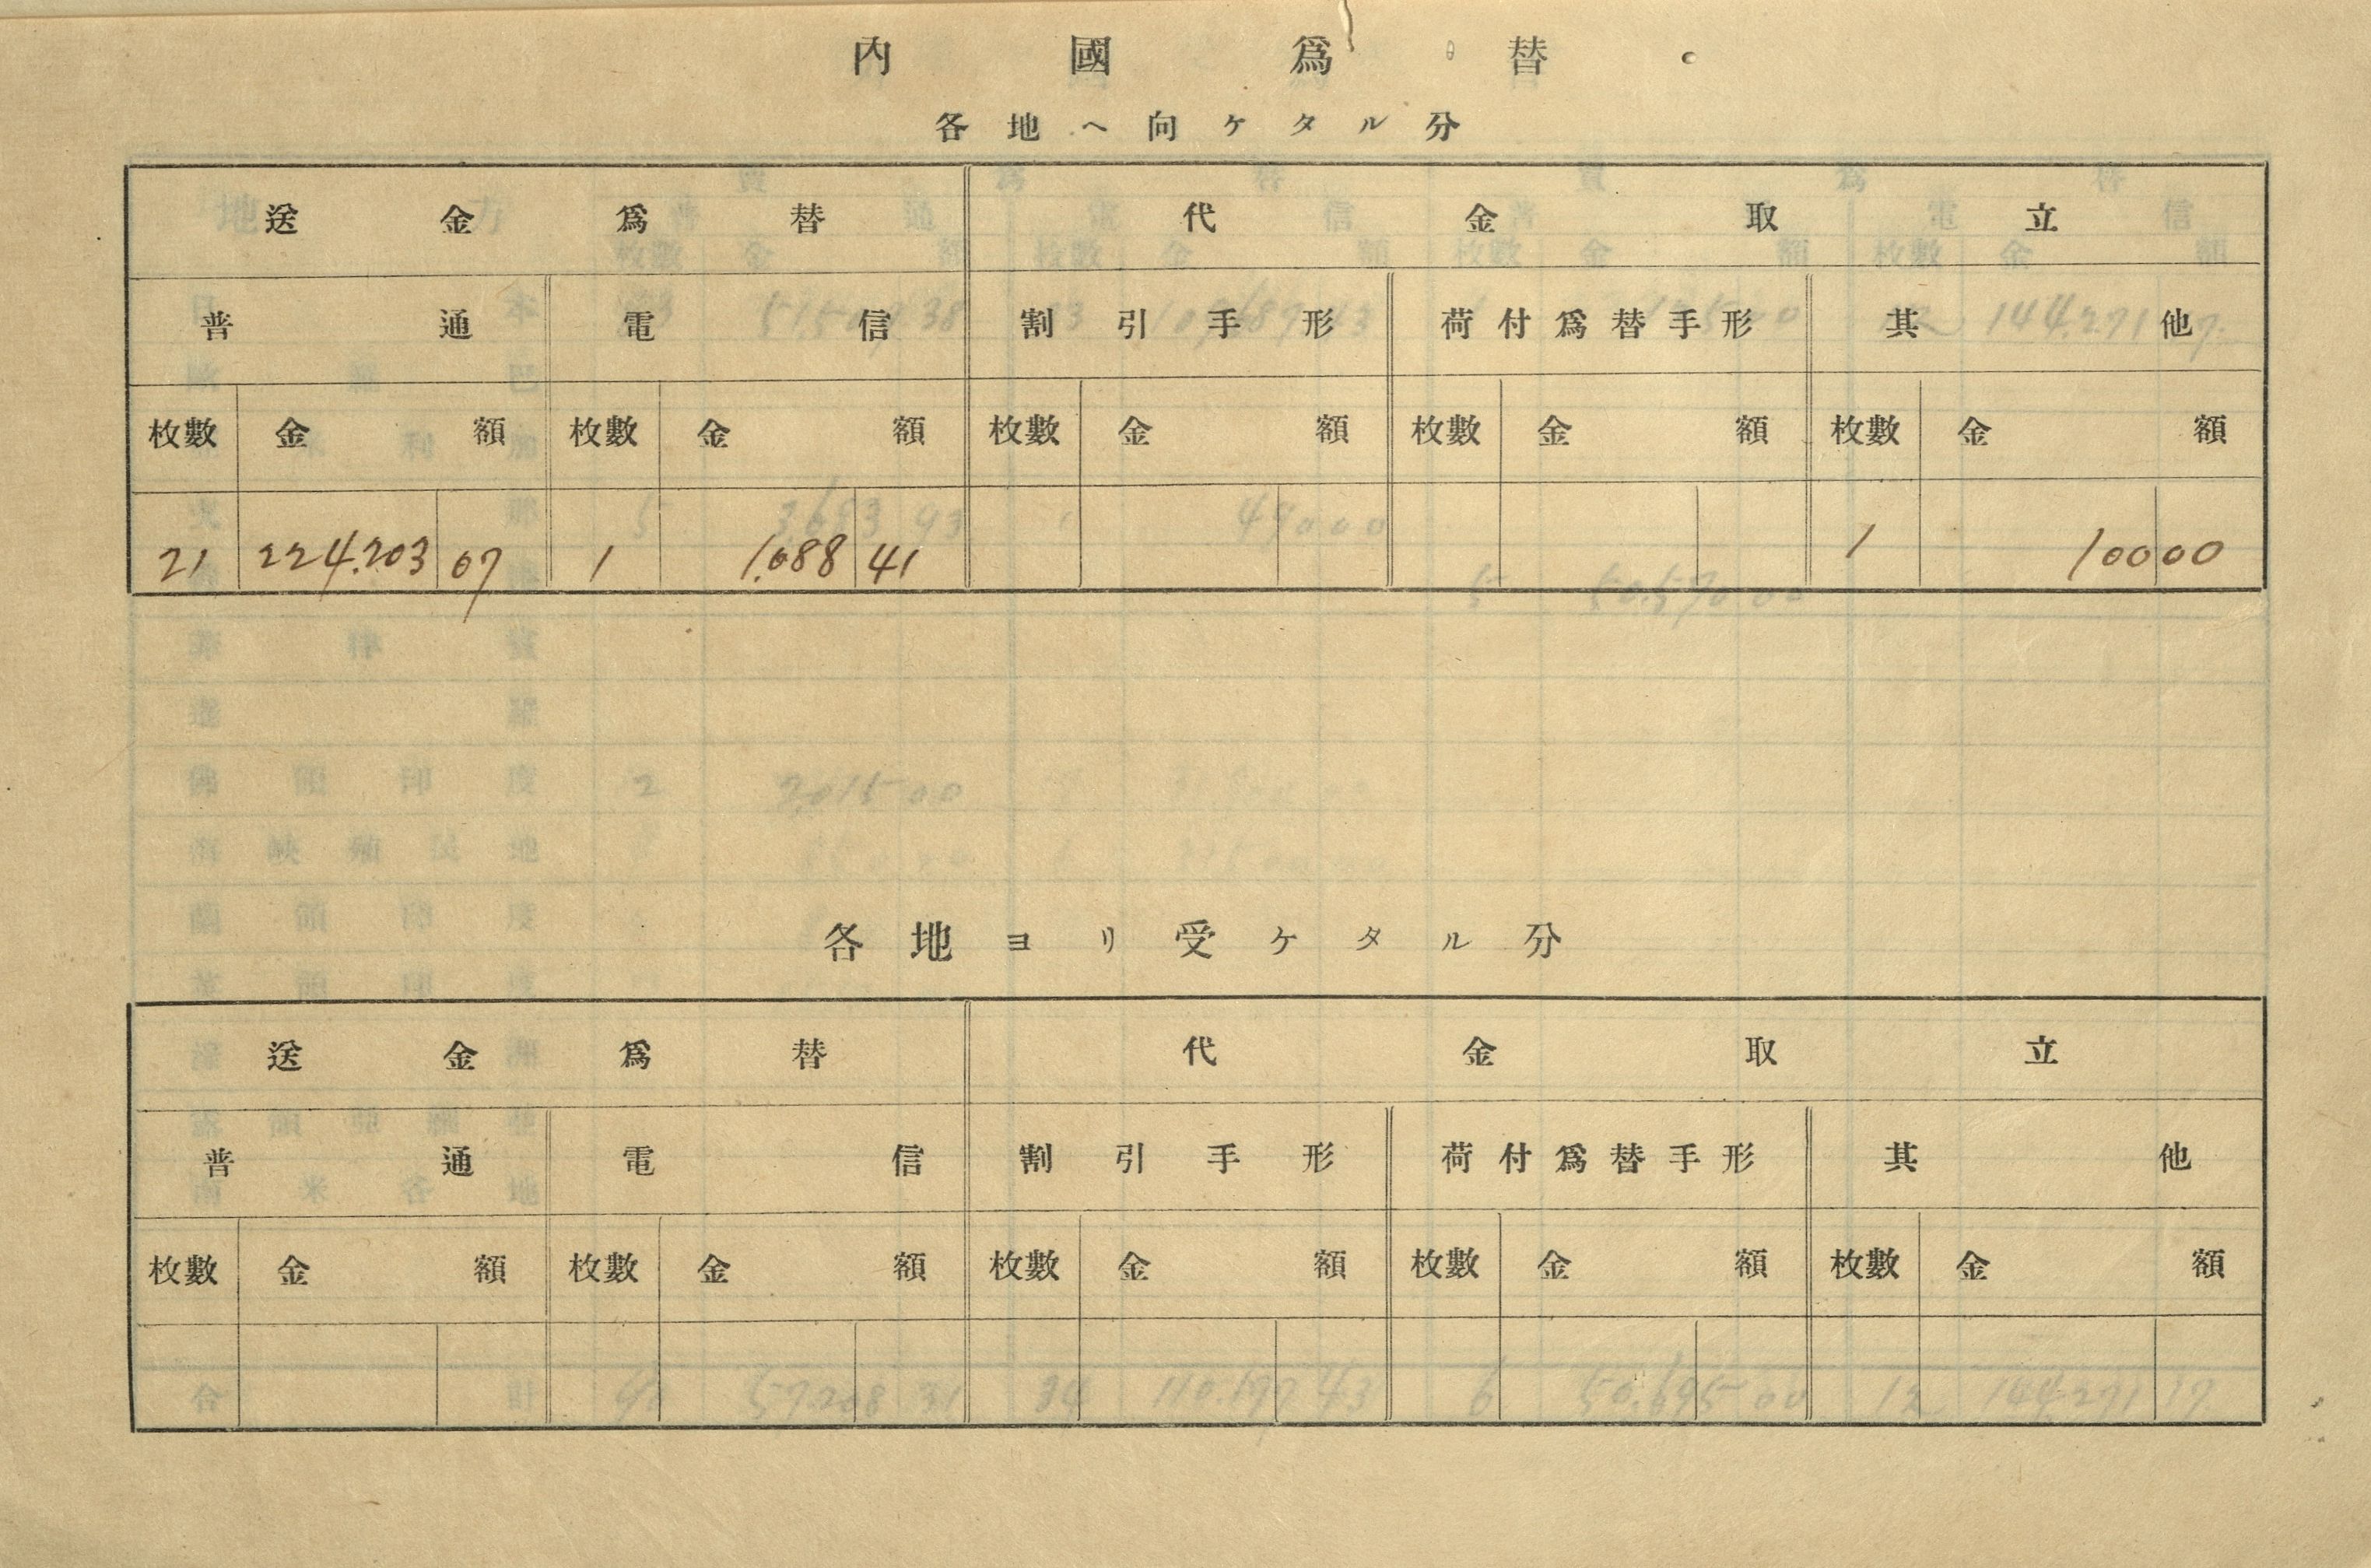 內國爲替
各地ヘ向ケタル分
送金爲替 代金取立
普通 電信 割引手形 荷付爲替手形 其他
枚數 金額 枚數 金額 枚數 金額 枚數 金額 枚數 金額
21 224.203 07 1 1.088 41 1 100 00
各地ヨリ受ケタル分
送金爲替 代金取立
普通 電信 割引手形 荷付爲替手形 其他
枚數 金額 枚數 金額 枚數 金額 枚數 金額 枚數 金額